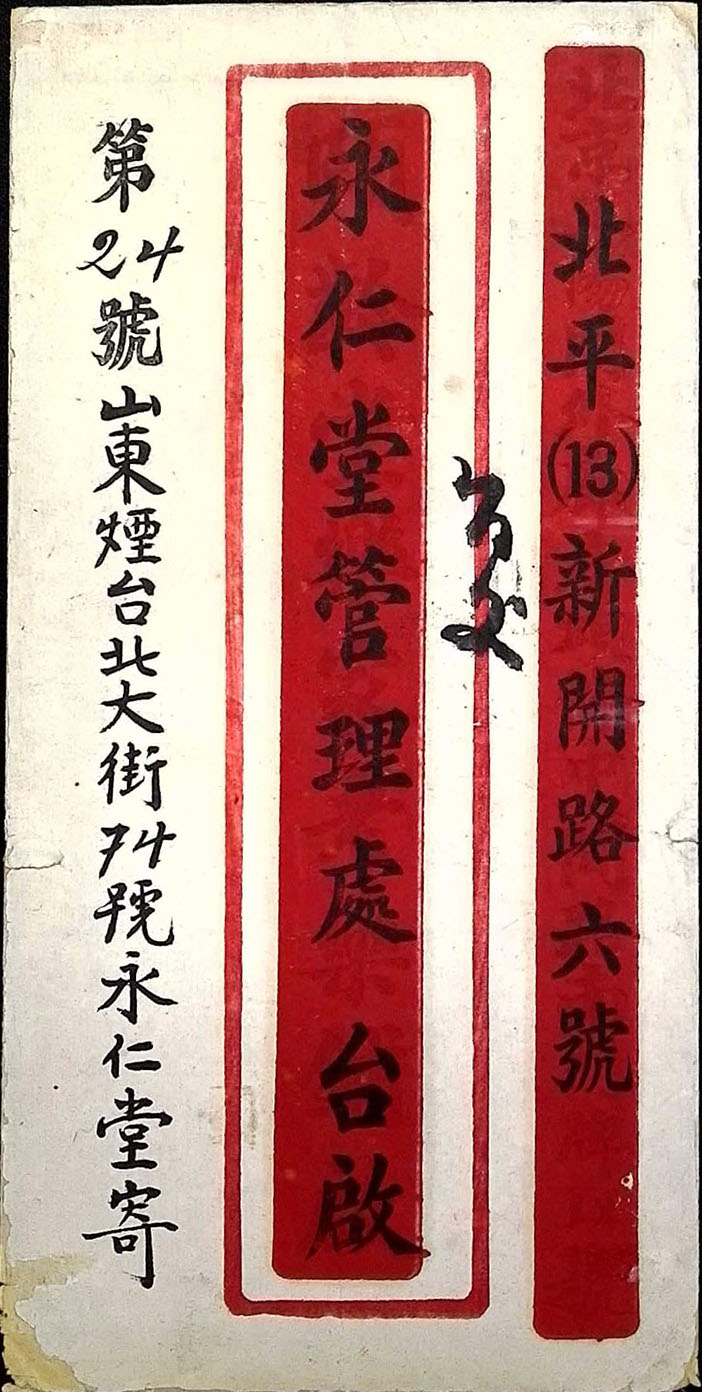 北平(13)新開路六號
永仁堂管理處台啟
第24號山東煙台北大街74號永仁堂寄